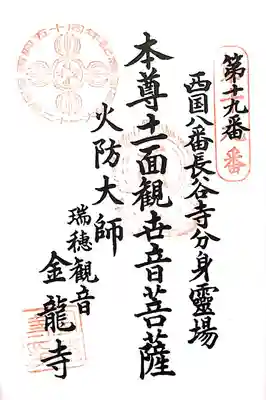 第十九番
西国八番長谷寺分身霊場
本尊十一面観世音菩薩
火防大師
瑞穂観音
金龍寺